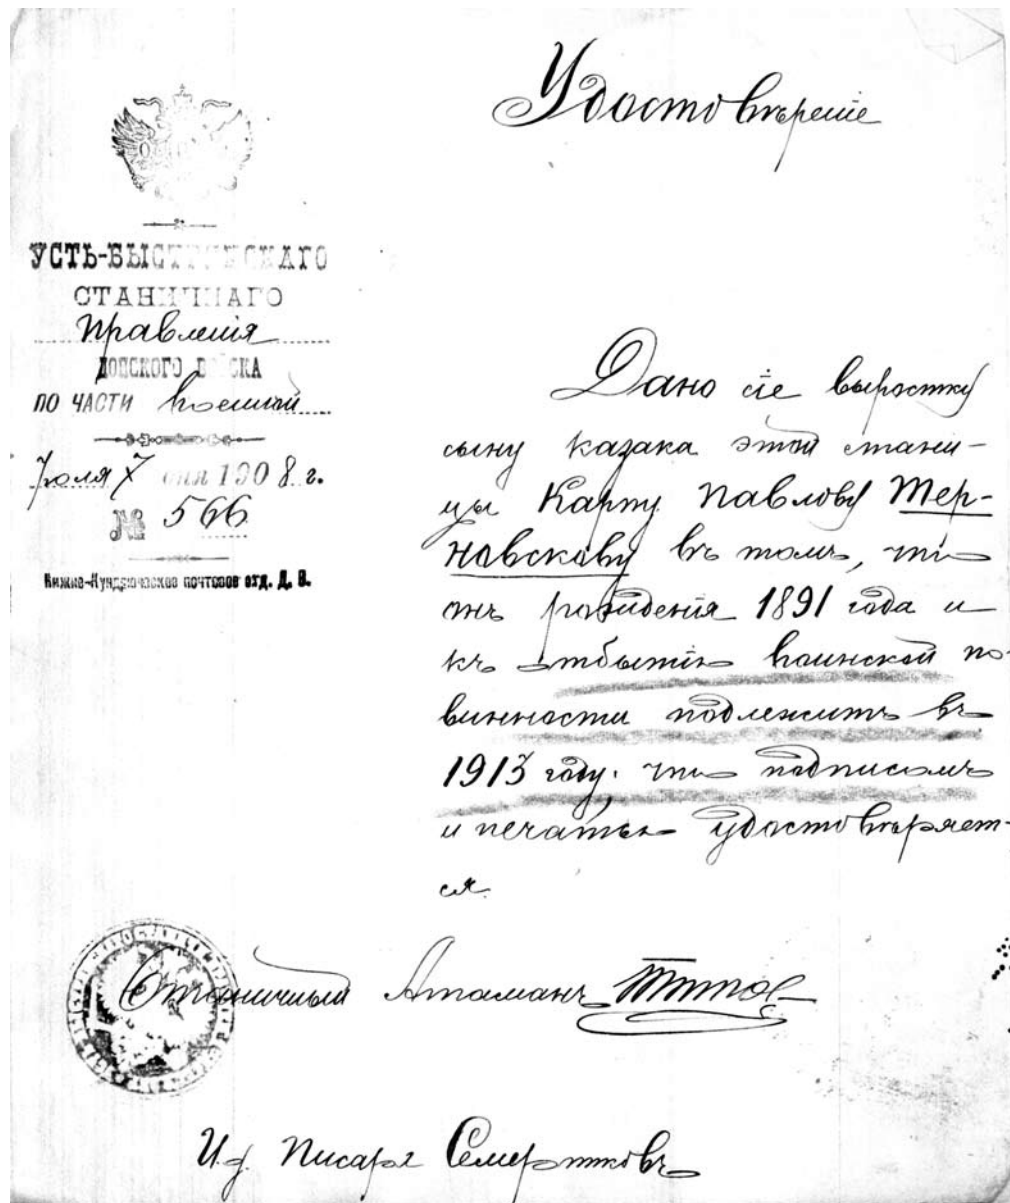 Удостовѣреніе
УСТЬ-БЫСТРЯНСКАГО
СТАНИЧНАГО
Правленія
ДОНСКОГО ВОЙСКА
ПО ЧАСТИ военной
Іюля 7 дня 1908 г.
№ 566
Нижне-Кундрюческое почтовое отд. Д. В.
Дано сіе выростку
сыну казака этой стани-
цы Карпу Павлову Тер-
новскову въ томъ, что
онъ рожденія 1891 года и
къ отбытію воинской по-
винности подлежитъ въ
1913 году, что подписомъ
и печатью удостовѣряет-
ся.
Станичный Атаманъ Титов
И. д. Писаря